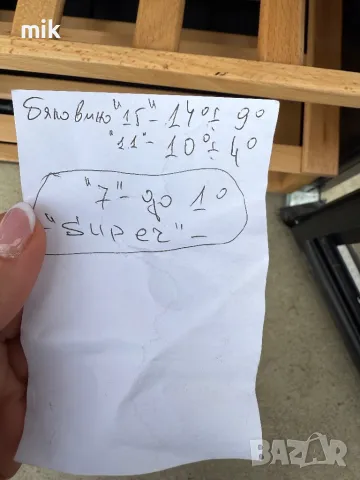 mik
"15" - 14° 9°
"11" - 10° 4°
"7" - до 1°
- "Super" -
BAZAR